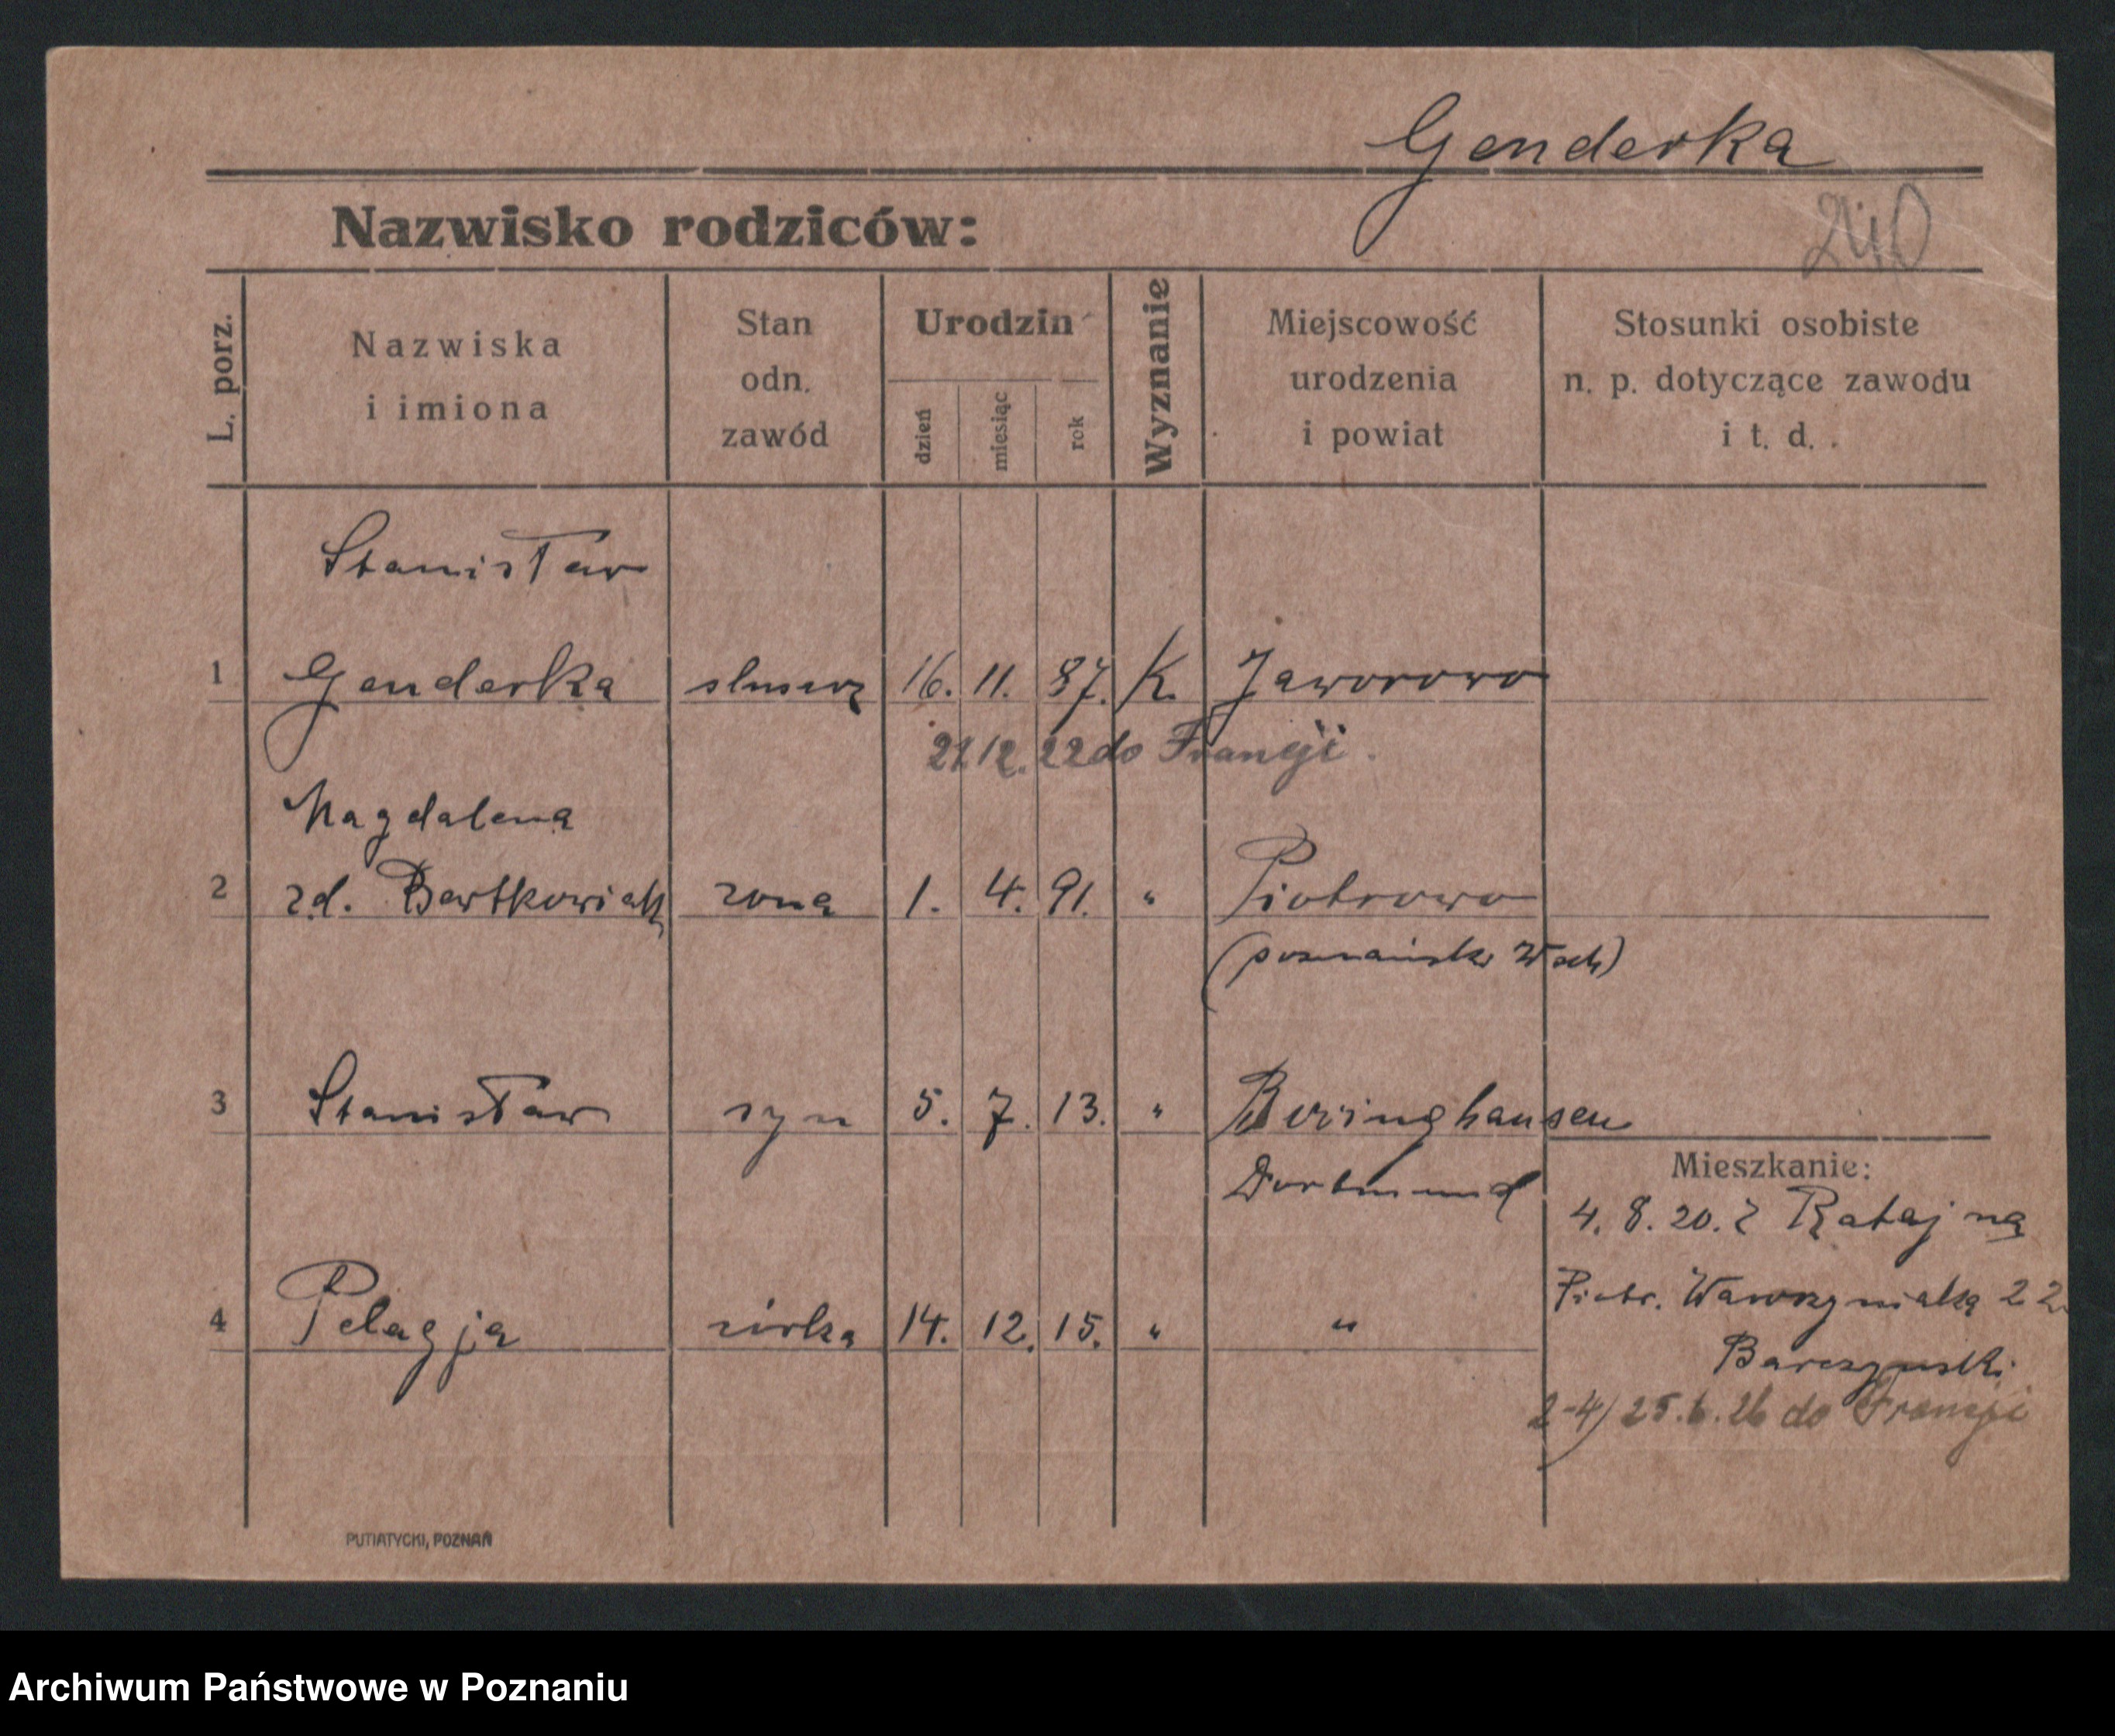 Genderka
240
Nazwisko rodziców:
L. porz.
Nazwiska
i imiona
Stan
odn.
zawód
Urodzin
dzień
miesiąc
rok
Wyznanie
Miejscowość
urodzenia
i powiat
Stosunki osobiste
n. p. dotyczące zawodu
i t. d.
Stanisław
1 Genderka slusarz 16. 11. 87. K. Jaworowo
21.12.22 do Francji.
Magdalena
2 zd. Bartkowiak zona 1. 4. 91. " Piotrowo
(poznańsk. Wsch)
3 Stanisław syn 5. 7. 13. " Beringhausen
Dortmund
Mieszkanie:
4. 8. 20. z Rataj na
4 Pelagja córka 14. 12. 15. " "
Piotr. Wawrzyniaka 22
Barczynski
2-4) 25.6.26 do Francji
PUTIATYCKI, POZNAŃ
Archiwum Państwowe w Poznaniu